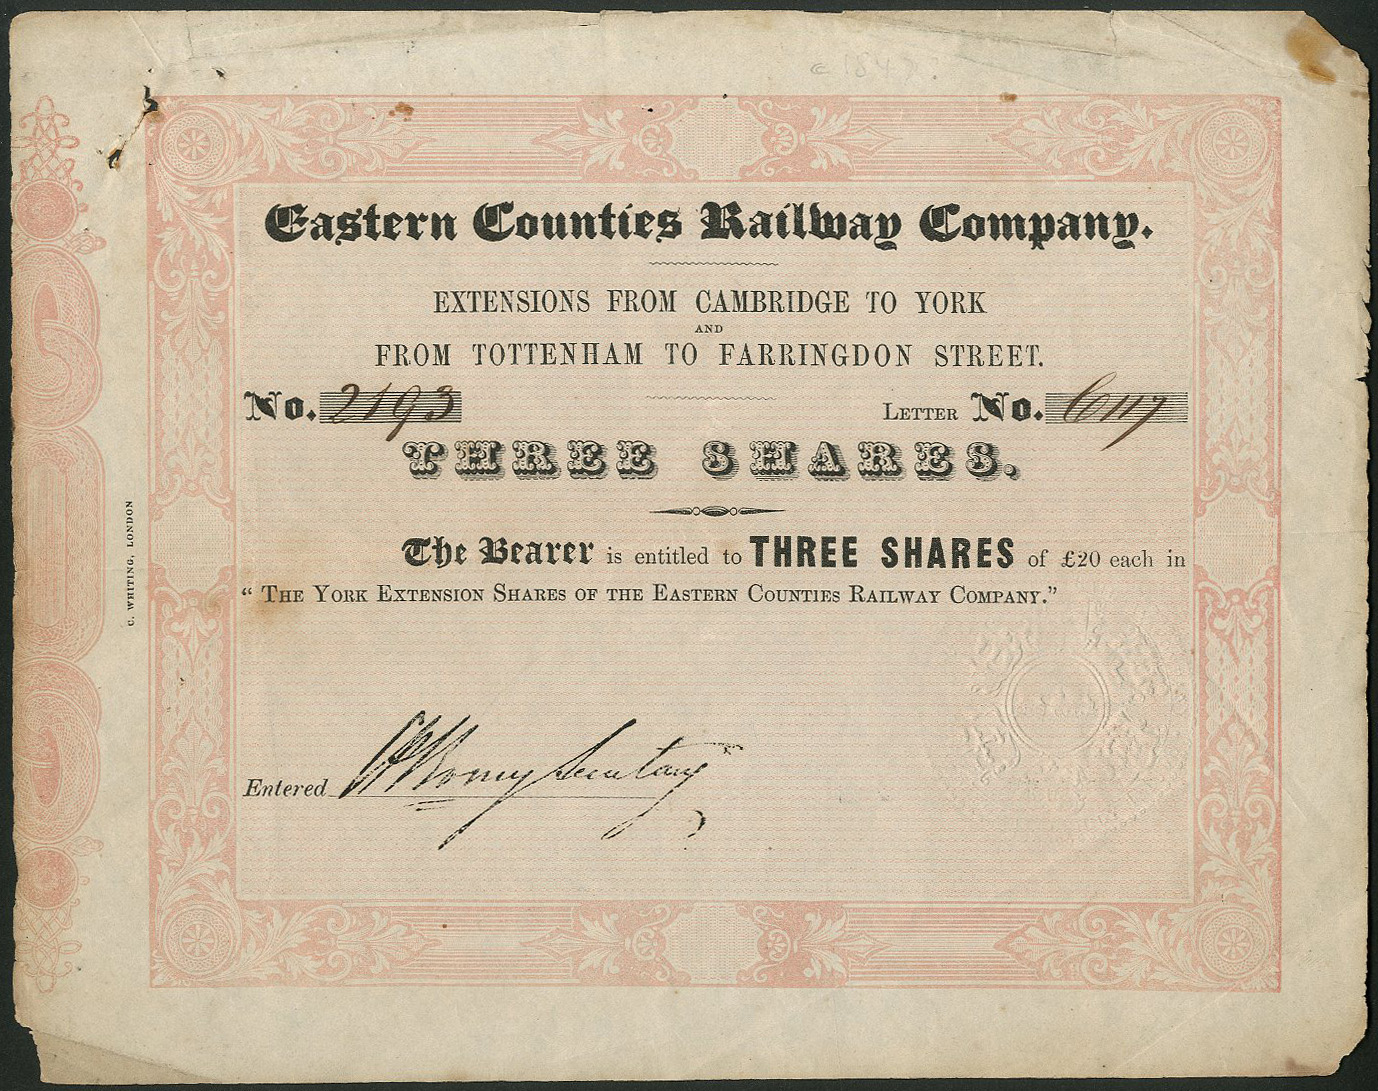 c 1847?
Eastern Counties Railway Company.
EXTENSIONS FROM CAMBRIDGE TO YORK
AND
FROM TOTTENHAM TO FARRINGDON STREET.
No. 2193 LETTER No. 6117
THREE SHARES.
The Bearer is entitled to THREE SHARES of £20 each in
“ THE YORK EXTENSION SHARES OF THE EASTERN COUNTIES RAILWAY COMPANY.”
Entered Secretary
C. WHITING, LONDON